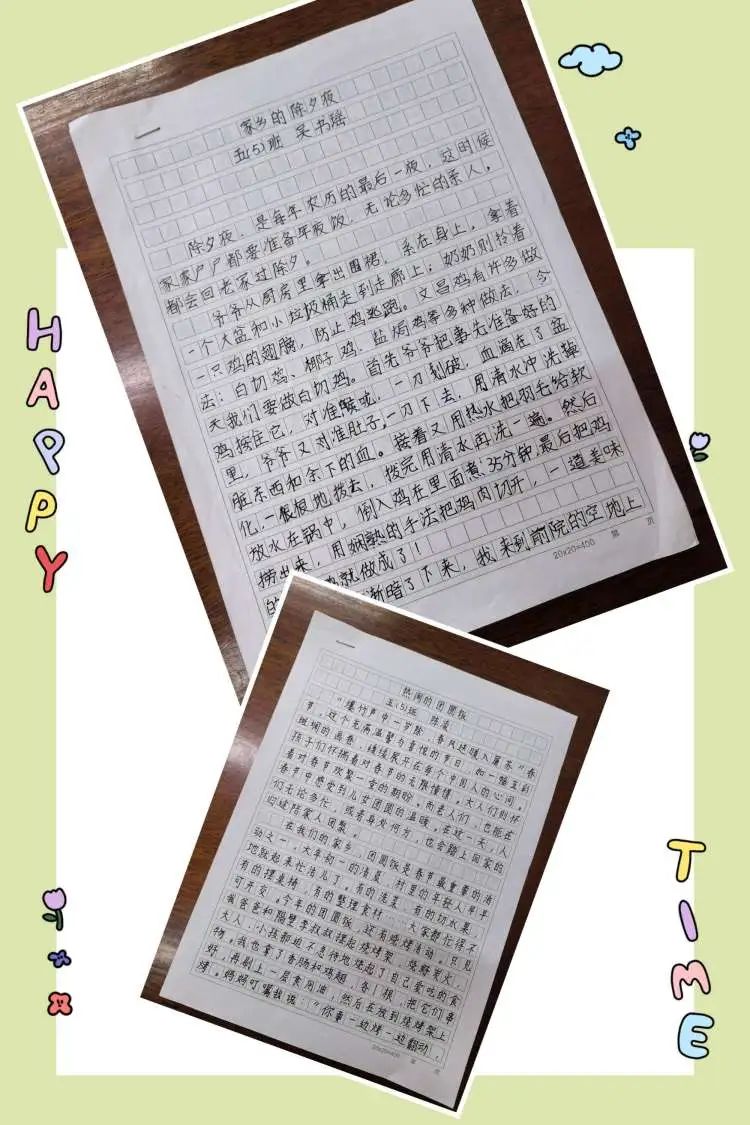 家乡的除夕夜
五(5)班 吴书瑶
除夕夜，是每年农历的最后一晚，这时候
家家户户都要准备年夜饭，无论多忙的亲人，
都会回老家过除夕。
爷爷从厨房里拿出围裙，系在身上，拿着
一个大盆和小垃圾桶走到走廊上；奶奶则拎着
一只鸡的翅膀，防止鸡逃跑。文昌鸡有许多做
法：白切鸡、椰子鸡、盐焗鸡等多种做法，今
天我们要做白切鸡。首先爷爷把事先准备好的
鸡按住它，对准喉咙，一刀划破，血滴在了盆
里，爷爷又对准肚子，一刀下去，用清水冲洗
脏东西和余下的血。接着又用热水把羽毛给软
化，一根根地拔去，拔完用清水再洗一遍。然后
放水在锅中，倒入鸡在里面煮35分钟，最后把鸡
捞出来，用娴熟的手法把鸡肉切开，一道美味
的 就做成了！
渐暗了下来，我来到前院的空地上
20×20=400 第 页
热闹的团圆饭
五(5)班 陈
“爆竹声中一岁除，春风送暖入屠苏”春
节，这个充满温馨与喜悦的节日，如一幅五彩
斑斓的画卷，缓缓展开在每个中国人的心间。
孩子们怀揣着对春节的无限憧憬。大人们则怀
着对春节欢聚一堂的期盼。而老人们，也能在
春节中感受到儿女团圆的温暖。在这一天，人
们无论多忙，或者身处何方，也会踏上回家的
归途陪家人团聚。
在我们的家乡，团圆饭是春节最重要的活
动之一，大年初一的清晨，村里的年轻人早早
地就起来忙活儿了。有的洗菜，有的切水果，
有的摆桌椅，有的整理食材……大家都忙得不
可开交。今年的团圆饭，还有烧烤自助。只见
我爸爸和隔壁李叔叔摆起烧烤架，烧野炭火，
大人、小孩都迫不及待地烧起了自己爱吃的食
物。我也拿了香肠和鸡翅，各一根，把它们串
好，再刷上一层食用油，然后在放到烧烤架上
烤。妈妈叮嘱我说：“你要一边烤一边翻动，
20×20=400 第 页
HAPPY
TIME